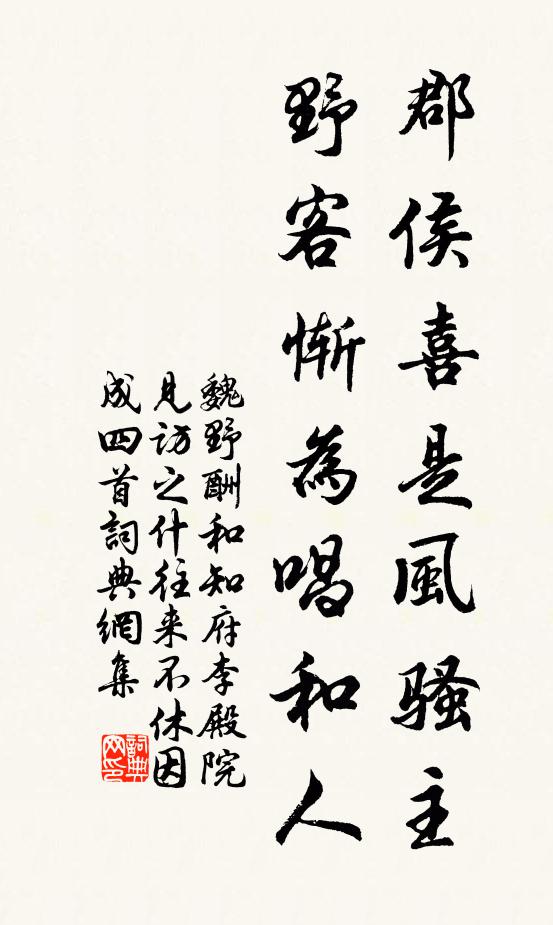 郡侯喜是風騷主
野客慚為唱和人
魏野酬和知府李殿院
見訪之什往来不休因
成四首詞典網集
詞典網印